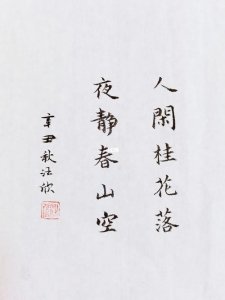 人閑桂花落
夜靜春山空
辛丑秋汪欣